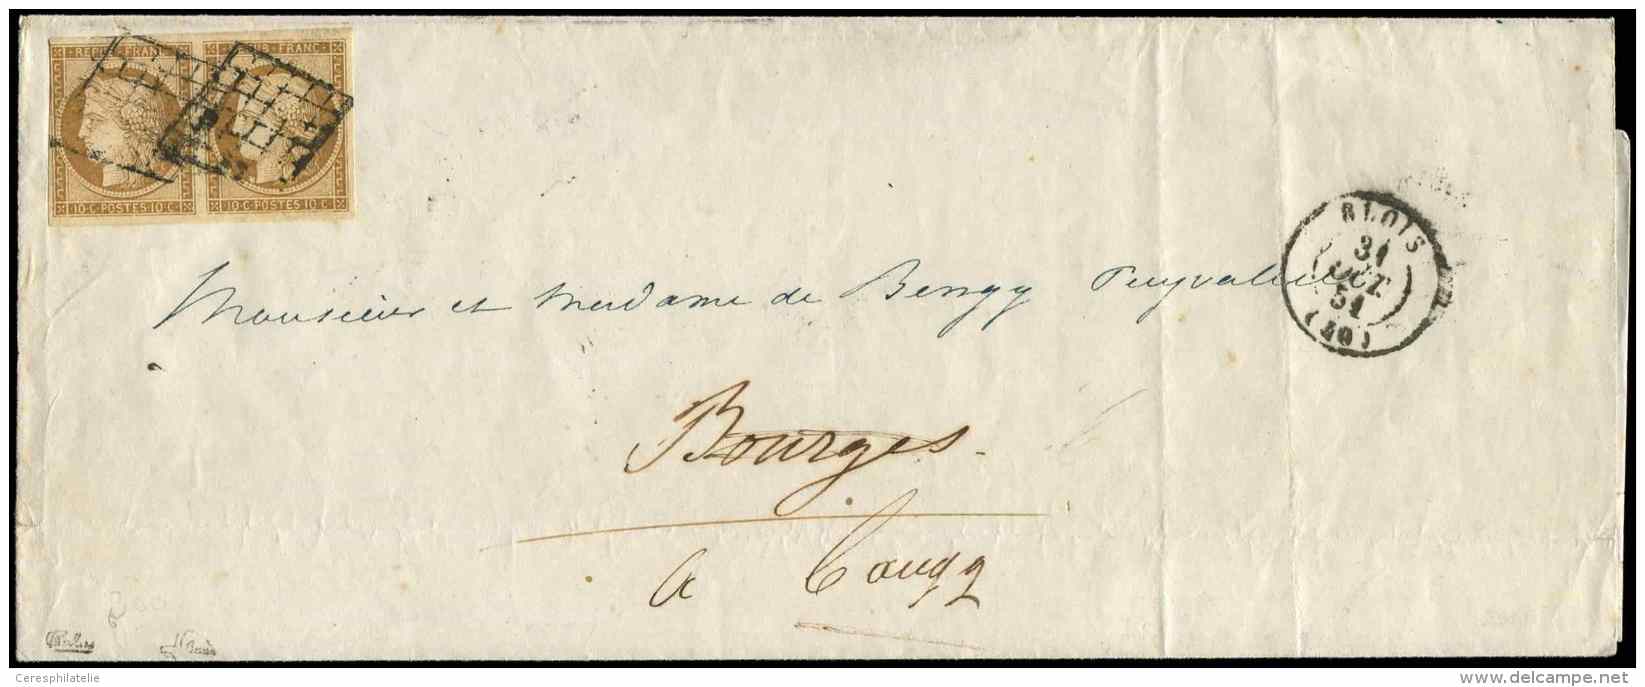 REPUB·FRANC
REPUB·FRANC
10·C·POSTES·10·C
10·C·POSTES·10·C
BLOIS
31
OCT.
51
(40)
Monsieur et Madame de Bengy Puyvallée
Bourges
a Cougy
Ceresphilatelie
www.delcampe.net